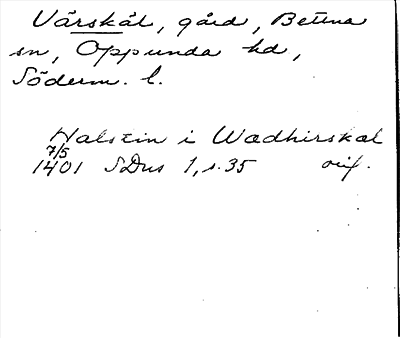 Vårskäl, gård, Bettna
sn, Oppunda hd,
Söderm. l.
Halstin i Wadhirskal
7/5
1401 SDns 1, s. 35 orig.